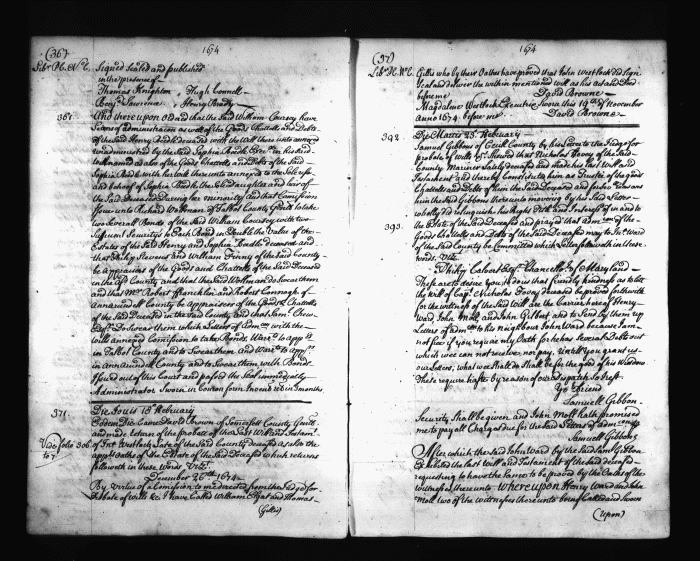 (36)
1674
Signed Sealed and published
in the presence of
Thomas Knighton , Hugh
, Henry Brady
367
And thereupon that the said William Coursey have
Letters of administration as well of the Goods Chattells and Debts
of the said Henry Beedle deceased with the Will thereunto annexed
as also of the Goods Chattells and Debts of the said
Sophia Beedle with her will thereunto annexed to the Sole use
and behoof of Sophia Beedle the Sole daughter and heir of
the said deceased During her minority And that Comission
issue unto Richard Woolman of Talbot County Gent to take
Bonds of the said William Coursey with two
Sufficient Securitys to Each Bond in Double the Value of the
Estate of the said Henry and Sophia Beedle deceased and
that Philip Stevens and William Finny of the said County
be appraisers of the Goods and Chattells of the said deceased
in the County and that the said Woolman do Swear them
and that Robert Francklin and Robert Connagh of
Annarundell County be appraisers of the Goods & Chattells
of the said Deceased in the said County and that Sam: Chew
do Swear them which Letters of adm: with the
will annexed Comission to take Bonds to app
in Talbot County and to Swear them and to app
in Annarundell County and to Swear them with Bonds
issued out of this Court
Administrator Sworn in Comon form Invent: ret: in 3 months
371.
Die Jouis 18 February
Came David Brown of Somersett County Gent
and made return of the probate of the Last Will and Testam:
Vide folio 306
of Jno: Westlock Late of the said County Deceased as also the
app: Oaths of the Estate of the said Deceased which returns
followeth in these Words Vizt:
December 26th 1674
By Virtue of a Comission to me directed from the Judge for
Probate of wills &c: I have Called William and Thomas
(Gillis)
(37)
1674
Gillis who by their Oathes have proved that John Westlock did Sign
Seal and deliver the within mentioned will as his Act and Deed
before me
David Browne
Magdalene Westlock Executrix Sworn this 19th of November
Anno 1674 before me
David Browne
392.
Die Martis 23 February
Samuel Gibbons of Cecill County by his Letter to the Judge for
probate of Wills &c: Shewed that Nicholas Dovey of the said
County Mariner Lately deceased and made his last Will and
Testament and thereby Constituted him as Trustee of the goods
Chattells and Debts of him the said Deceased and for Reasons
him the said Gibbons thereunto moveing by his said Letter
wholly did relinquish his Right Title and Interest in and to
393.
the Estate of the said Deceased and prayed that adm: of the
goods Chattells and Debts of the said Deceased may to Jno: Ward
of the said County be Committed which Letter followeth in these
words Vizt
Philip Calvert Esqr: Chancellor of Maryland
These are to desire you to do us that friendly kindness as to let
the will of Capt: Nicholas Dovey deceased be proved forthwith
for the witness of the said Will are the Carriers hereof Henry
Ward John Moll and John Gilbert also to Send by them up
Letters of adm: to his Neighbour John Ward because I am
not free if you require my Oath for he has Severall Debts out
which wee can not receive nor pay, Untill you grant us
our Letters, what wee shall do Shall be for the good of his Widdow
These require hast by reason of our dispatch So I rest
Yor: Friend
Samuell Gibbon
Security Shall be given, and John Moll hath promised
me to pay all Charges due for the said Letters of adm:
Samuell Gibbons
After which the said John Ward by the said Sam: Gibbon
Exhibited the last Will and Testament of the said deceased
requesting to have the same to be proved by the Oaths of the
witnesses thereunto Whereupon Henry Ward and John
Moll two of the witnesses thereunto being Called and Sworn
(Upon)